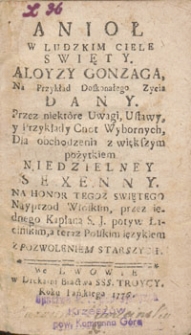 ANIOŁ
W LUDZKIM CIELE
SWIĘTY.
ALOYZY GONZAGA,
Na Przykład Doskonałego Zycia
DANY.
Przez niektóre Uwagi, Ustawy,
y Przykłady Cnot Wybornych,
Dla obchodzenia z większym
pożytkiem
NIEDZIELNEY
SEXENNY.
NA HONOR TEGOZ SWIĘTEGO
Nayprzod Włoskim, przez ie-
dnego Kapłana S. J. potym Ła-
cinskim, a teraz Polskim ięzykiem
Z POZWOLENIEM STARSZYCH.
WE LWOWIE
w Drukarni Bractwa SSS. TROYCY.
Roku Pańskiego